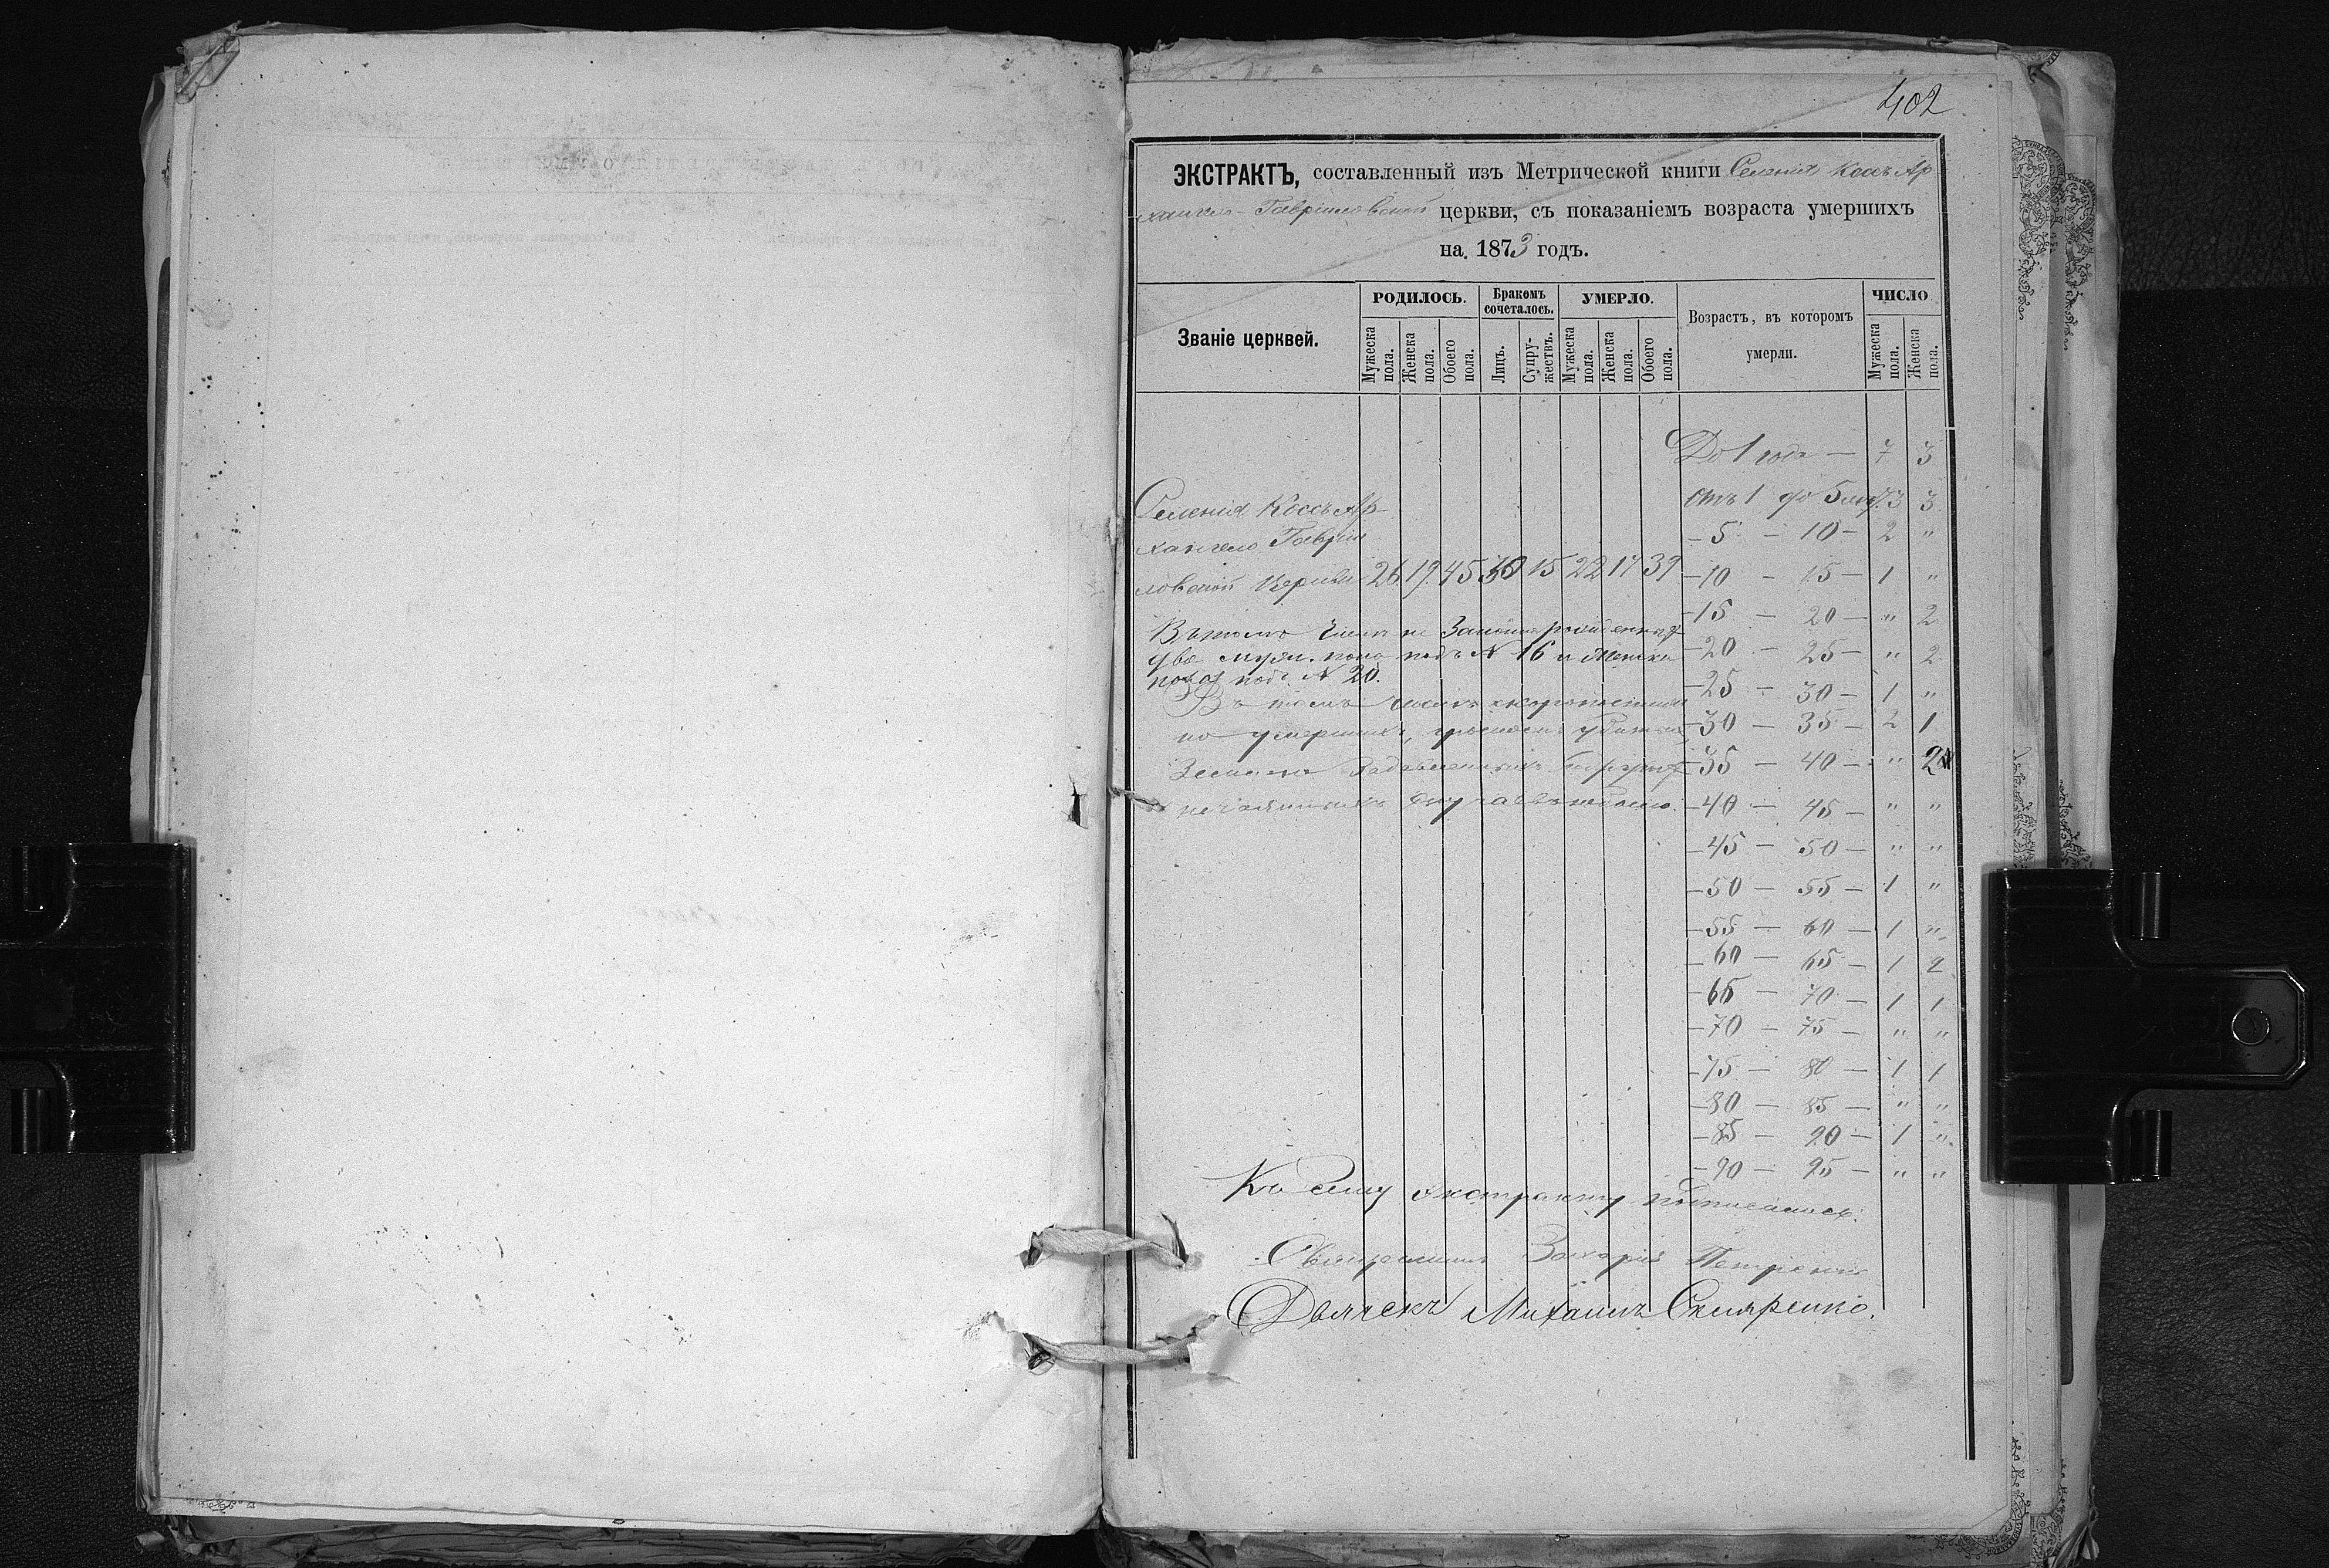 402
ЭКСТРАКТЪ, составленный изъ Метрической книги Селенія Кось Ар-
хангело-Гавріиловской церкви, съ показаніемъ возраста умершихъ
на 1873 годъ.
Званіе церквей.
РОДИЛОСЬ.
Бракомъ сочеталось.
УМЕРЛО.
Возрастъ, въ которомъ умерли.
ЧИСЛО
Мужеска пола.
Женска пола.
Обоего пола.
Лицъ.
Супружествъ.
Мужеска пола.
Женска пола.
Обоего пола.
Мужеска пола.
Женска пола.
До 1 года — 7 3
Отъ 1 до 5 3 3
Селенія Кось Ар-
хангело Гавріи
– 5 – 10 – 2 "
ловской Церкви 26 19 45 30 15 22 17 39
– 10 – 15 – 1 "
– 15 – 20 – " 2
Въ томъ числѣ не законнорожденныхъ
два муж. пола подъ № 16 и женска
– 20 – 25 – " 2
пола подъ № 20.
– 25 – 30 – 1 "
Въ томъ числѣ скоропостижно
но умершихъ,
– 30 – 35 – 2 1
– 35 – 40 – " 2
нечаянныхъ не было.
– 40 – 45 – " "
– 45 – 50 – " "
– 50 – 55 – 1 "
– 55 – 60 – 1 "
– 60 – 65 – 1 2
– 65 – 70 – 1 1
– 70 – 75 – " "
– 75 – 80 – 1 1
– 80 – 85 – " "
– 85 – 90 – 1 "
– 90 – 95 – " "
Къ сему экстракту подписались:
Священникъ Захарія Петренко
Дьячекъ Михаилъ Скляренко.